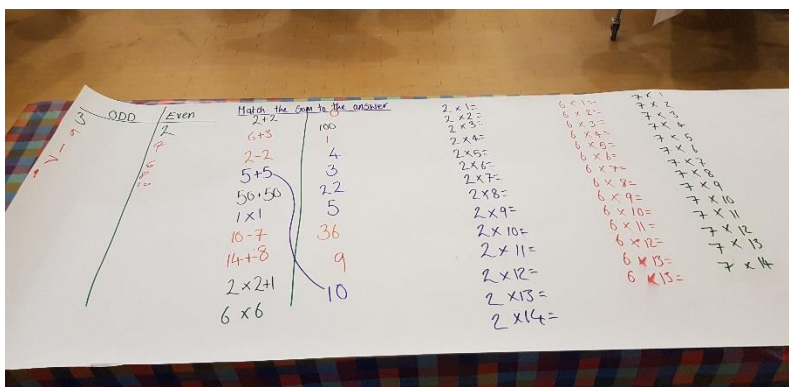 ODD
3
5
1
7
9
Even
2
4
6
8
10
Match the Som to the answer
2+2
6+3
2-2
5+5
50+50
1x1
10-7
14+8
2x2+1
6x6
0
100
1
4
3
22
5
36
9
10
2x1=
2x2=
2x3=
2x4=
2x5=
2x6=
2x7=
2x8=
2x9=
2x10=
2x11=
2x12=
2x13=
2x14=
6x1=
6x2=
6x3=
6x4=
6x5=
6x6=
6x7=
6x8=
6x9=
6x10=
6x11=
6x12=
6x13=
6x13=
7x1
7x2
7x3
7x4
7x5
7x6
7x7
7x8
7x9
7x10
7x11
7x12
7x13
7x14